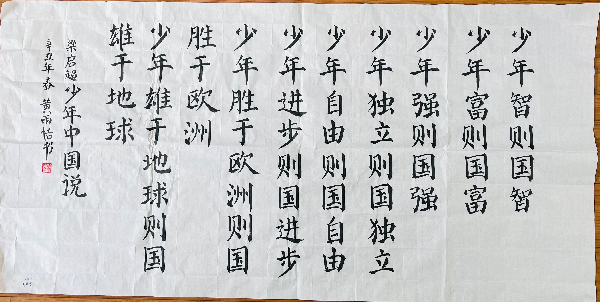 少年智则国智
少年富则国富
少年强则国强
少年独立则国独立
少年自由则国自由
少年进步则国进步
少年胜于欧洲则国
胜于欧洲
少年雄于地球则国
雄于地球
梁启超少年中国说
辛丑年春黄 怡书